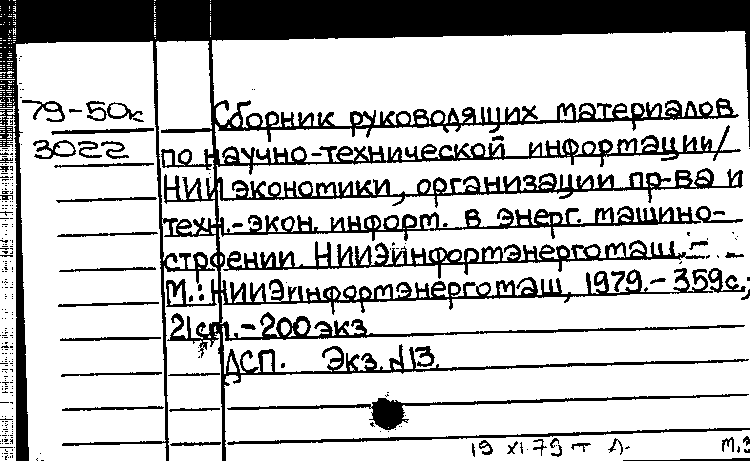 79-50к Сборник руководящих материалов
3022 по научно-технической информации/
НИИ экономики, организации пр-ва и
техн.-экон. информ. в энерг. машино-
строении. НИИЭинформэнергомаш.-
М.: НИИЭинформэнергомаш, 1979.- 359с.;
21см.-200экз.
ДСП. Экз.№13.
19 XI.79